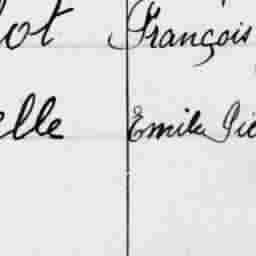 lot François
elle Emile Pie